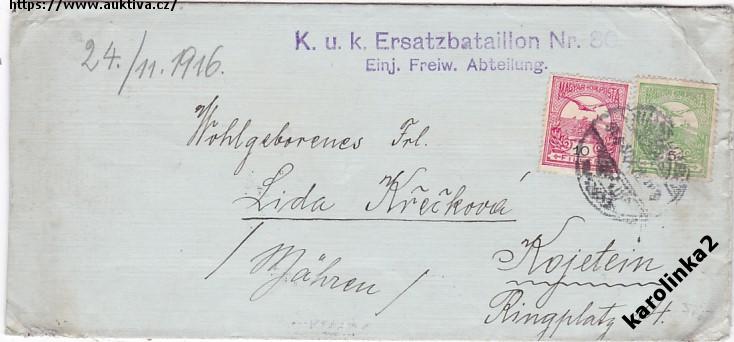 https://www.auktiva.cz/
24./11.1916.
K. u. k. Ersatzbataillon Nr. 86
Einj. Freiw. Abteilung.
MAGYAR KIR. POSTA
10
Wohlgeborenes Frl.
Lida Křečková
/ Mähren /
Kojetein
Ringplatz 4.
karolinka2